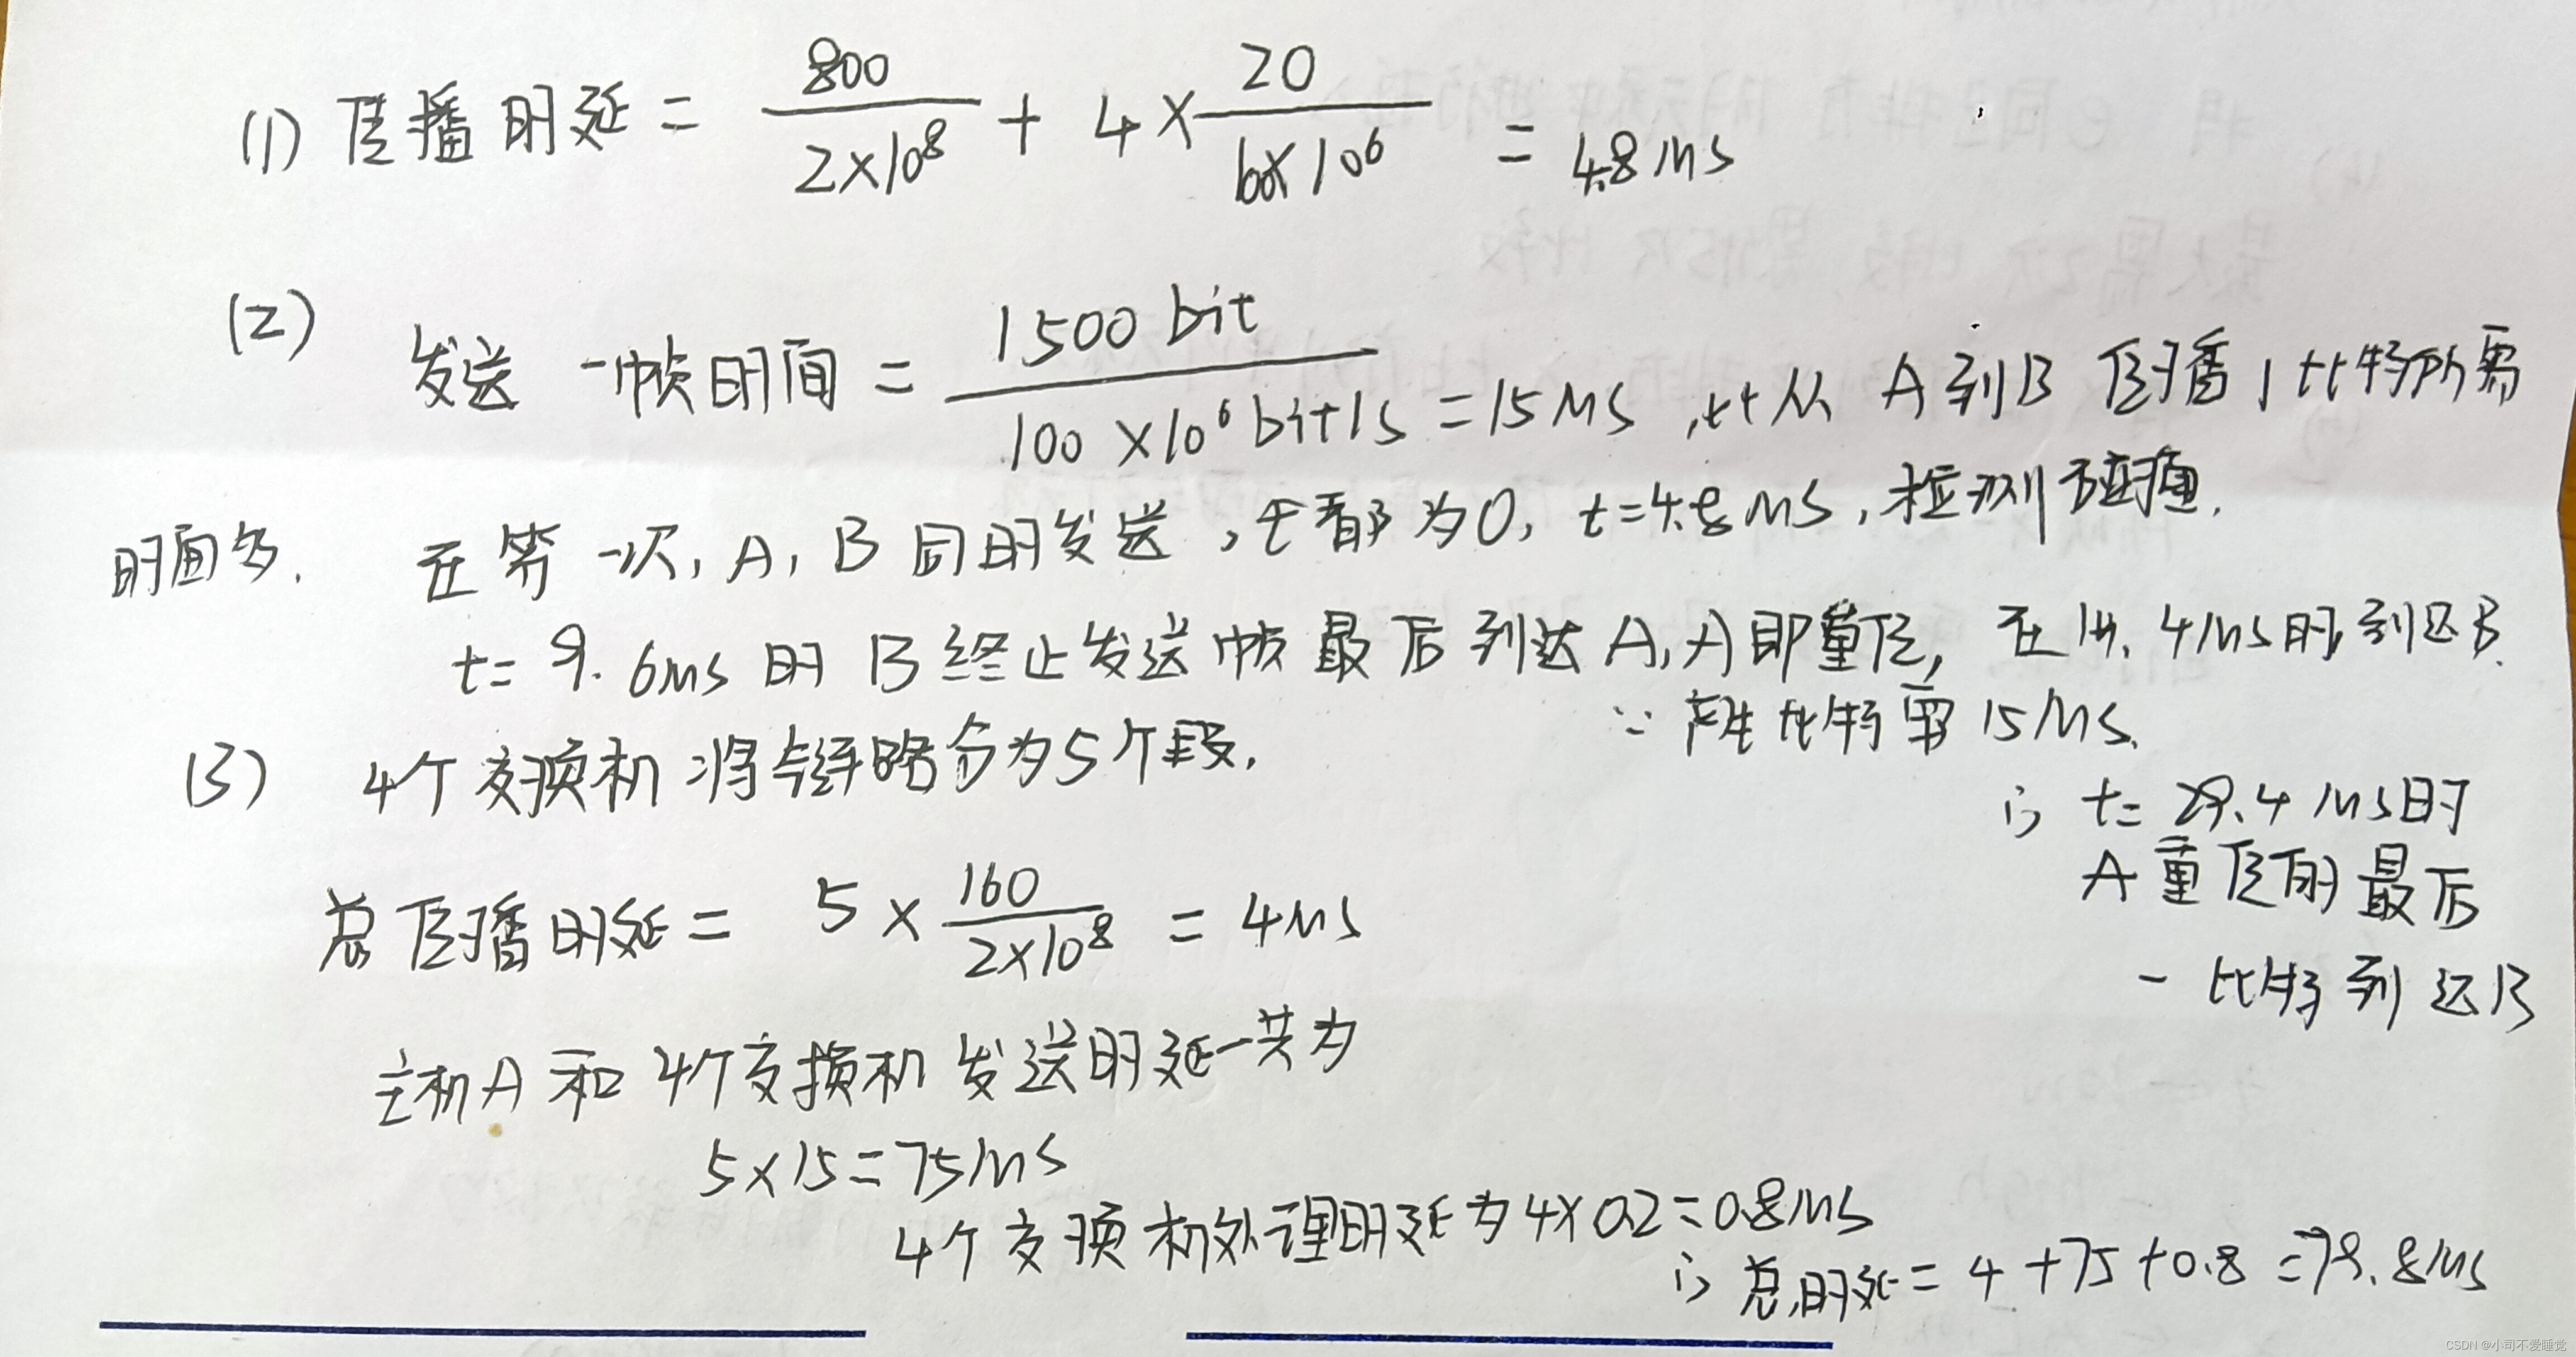 (1) 传播时延 = 800/2×10⁸ + 4× 20/100×10⁶ = 4.8 Ms
(2) 发送一帧时间 = 1500 bit/100×10⁶ bit/s = 15 Ms , 比从 A 到 B 传播 1 比特所需
时间多. 在第一次, A, B 同时发送, 七都为 0, t=4.8 Ms, 检测碰撞.
t= 9.6ms 时 B 终止发送帧最后到达 A, A 即重传, 在 14.4Ms时到达B.
∵ 产生比特需 15 Ms.
(3) 4个交换机将链路分为5个段.
∴ t= 29.4 Ms时
A 重传的最后
一比特到达B
总传播时延 = 5 × 160/2×10⁸ = 4Ms
主机A 和 4个交换机 发送时延一共为
5×15=75Ms
4个交换机处理时延为 4×0.2=0.8Ms
∴ 总时延 = 4+75+0.8 =79.8Ms
CSDN @小司不爱睡觉